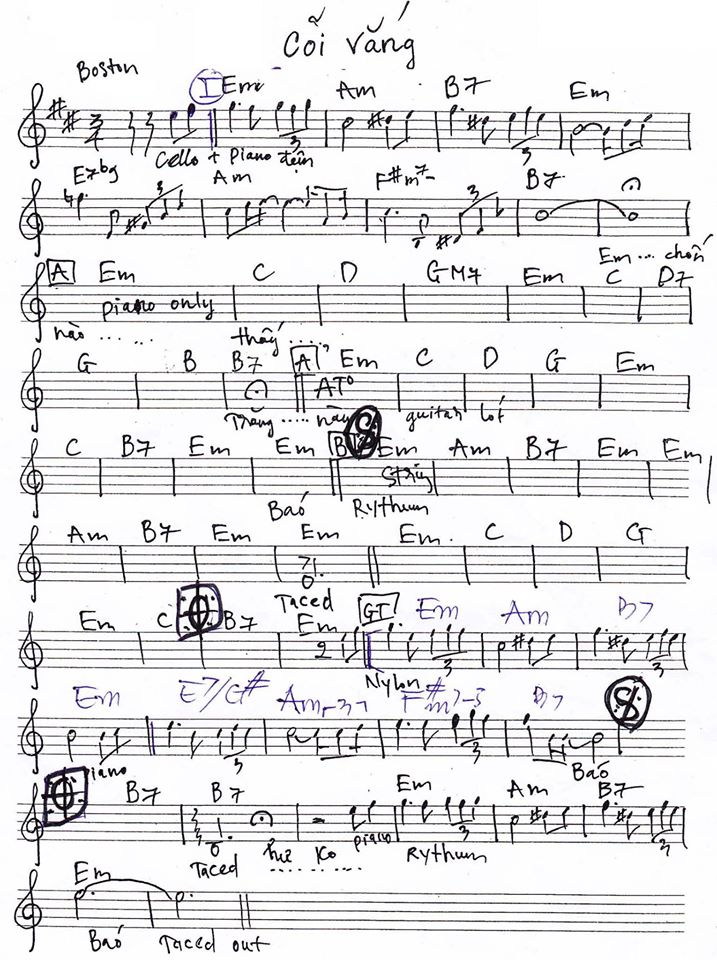 Cõi Vắng
Boston
I Em Am B7 Em
3/4 3 3
Cello + Piano đệm
E7b9 Am F#m7- B7
3 3
Em ... chốn
A Em C D GM7 Em C D7
piano only
nào ...... thấy .....
G B B7 A' Em C D G Em
Trăng ..... này guitar lót
C B7 Em Em B Em Am B7 Em Em
String
Baó Rythum
Am B7 Em Em Em C D G
Taced
Em C B7 Em GT Em Am B7
2 3 3
Nylon
Em E7/G# Am F#m7-5 B7
3 3
piano Baó
B7 B7 Em Am B7
piano 3 3
Taced Ko Rythum
Em
Baó Taced out